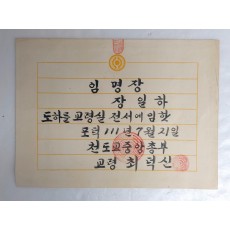 임명장
장일하
도하를 교령실 전서에 임함
포덕 111년 7월 21일
천도교중앙총부
교령 최덕신